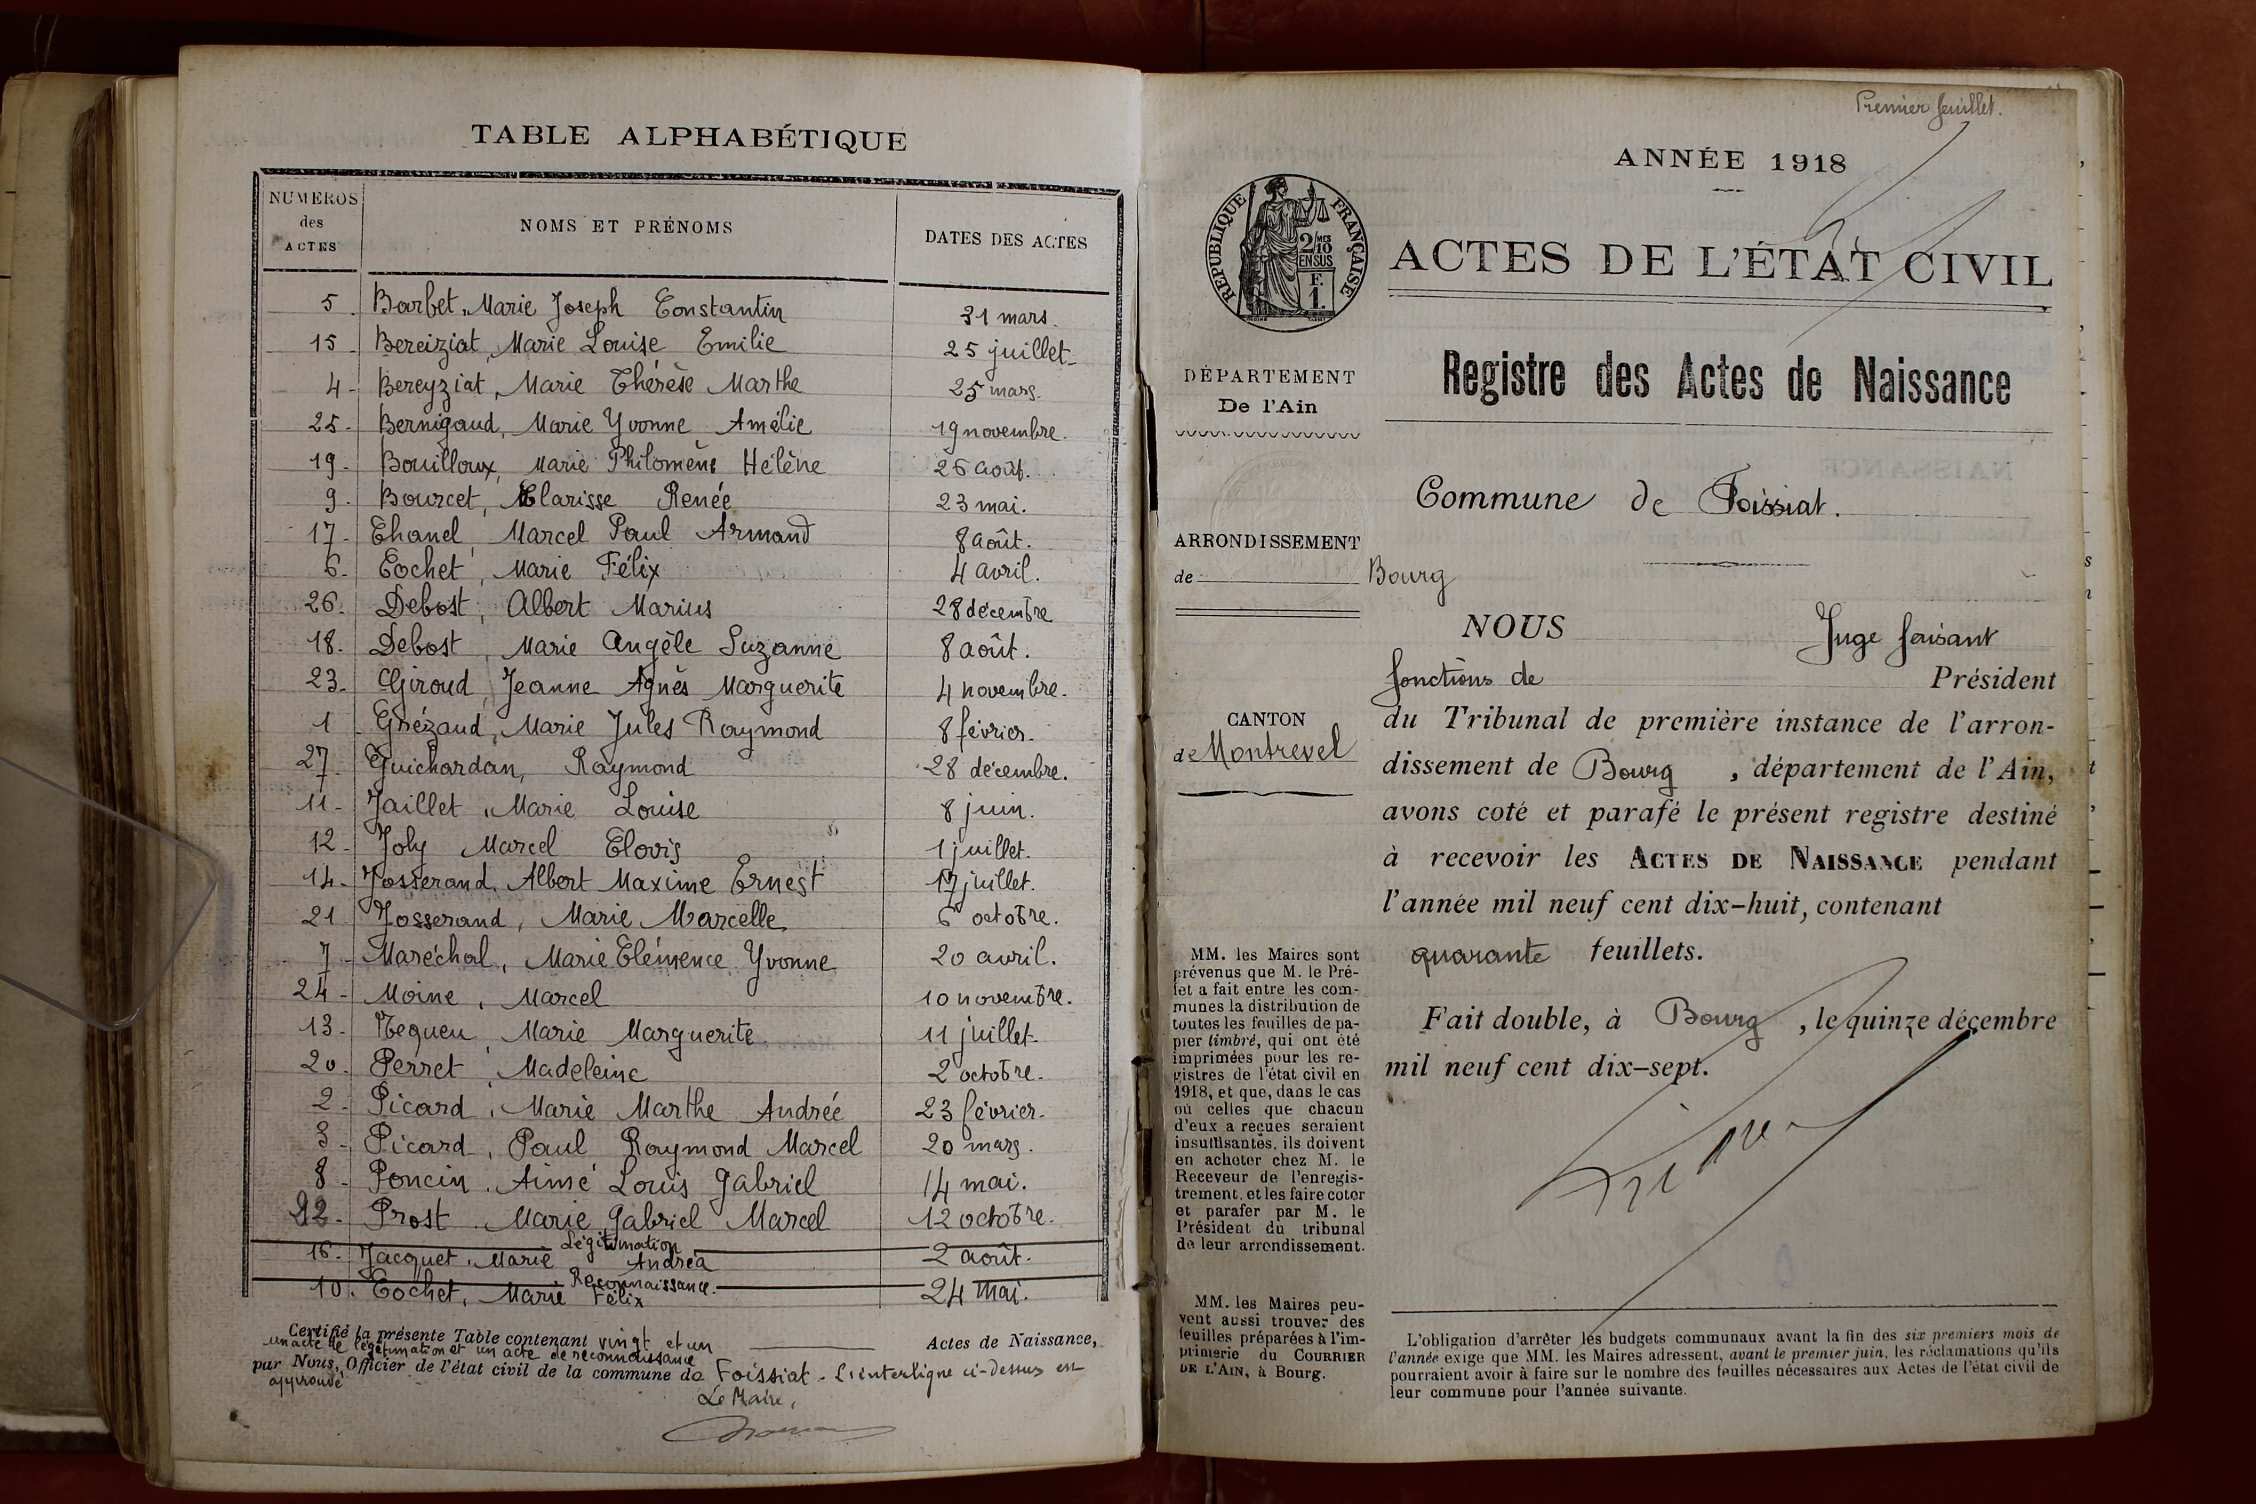 TABLE ALPHABÉTIQUE
NUMEROS des ACTES
NOMS ET PRÉNOMS
DATES DES ACTES
5 Barbet, Marie Joseph Constantin 31 mars.
15 Bereiziat, Marie Louise Emilie 25 juillet
4 Bereyziat, Marie Thérèse Marthe 25 mars.
25 Bernigaud, Marie Yvonne Amélie 19 novembre.
19 Bouilloux, Marie Philomène Hélène 26 août.
9 Bourcet, Clarisse Renée 23 mai.
17 Chanel, Marcel Paul Armand 8 août.
6 Cochet, Marie Félix 4 avril.
26 Debost, Albert Marius 28 décembre
18 Debost, Marie Angèle Suzanne 8 août.
23 Giroud, Jeanne Agnès Marguerite 4 novembre.
1 Gnézaud, Marie Jules Raymond 8 février.
27 Guichardan, Raymond 28 décembre.
11 Jaillet, Marie Louise 8 juin.
12 Joly Marcel Clovis 1 juillet.
14 Josserand, Albert Maxime Ernest 17 juillet.
21 Josserand, Marie Marcelle 6 octobre.
7 Maréchal, Marie Clémence Yvonne 20 avril.
24 Moine, Marcel 10 novembre.
13 Tequeu, Marie Marguerite 11 juillet
20 Perret, Madeleine 2 octobre.
2 Picard, Marie Marthe Andrée 23 février.
3 Picard, Paul Raymond Marcel 20 mars.
8 Poncin, Aimé Louis Gabriel 14 mai.
22 Prost, Marie Gabriel Marcel 12 octobre.
Légitimation
16 Jacquet, Marie Andréa 2 août.
Reconnaissance.
10 Cochet, Marie Félix 24 mai.
Certifié la présente Table contenant vingt et un Actes de Naissance,
un acte de légitimation et un acte de reconnaissance
par Nous, Officier de l'état civil de la commune de Foissiat - L'interligne ci-dessus est
approuvé
Le Maire,
Premier feuillet.
ANNÉE 1918
RÉPUBLIQUE FRANÇAISE
2/10 MES EN SUS
F. 1.
ACTES DE L'ÉTAT CIVIL
Registre des Actes de Naissance
DÉPARTEMENT
De l'Ain
Commune de Foissiat.
ARRONDISSEMENT
de Bourg
CANTON
de Montrevel
NOUS Juge faisant
fonctions de Président
du Tribunal de première instance de l'arron-
dissement de Bourg, département de l'Ain,
avons coté et parafé le présent registre destiné
à recevoir les ACTES DE NAISSANCE pendant
l'année mil neuf cent dix-huit, contenant
quarante feuillets.
Fait double, à Bourg, le quinze décembre
mil neuf cent dix-sept.
MM. les Maires sont
prévenus que M. le Pré-
fet a fait entre les com-
munes la distribution de
toutes les feuilles de pa-
pier timbré, qui ont été
imprimées pour les re-
gistres de l'état civil en
1918, et que, dans le cas
où celles que chacun
d'eux a reçues seraient
insuffisantes, ils doivent
en acheter chez M. le
Receveur de l'enregis-
trement, et les faire coter
et parafer par M. le
Président du tribunal
de leur arrondissement.
MM. les Maires peu-
vent aussi trouver des
feuilles préparées à l'im-
primerie du COURRIER
DE L'AIN, à Bourg.
L'obligation d'arrêter les budgets communaux avant la fin des six premiers mois de
l'année exige que MM. les Maires adressent, avant le premier juin, les réclamations qu'ils
pourraient avoir à faire sur le nombre des feuilles nécessaires aux Actes de l'état civil de
leur commune pour l'année suivante.